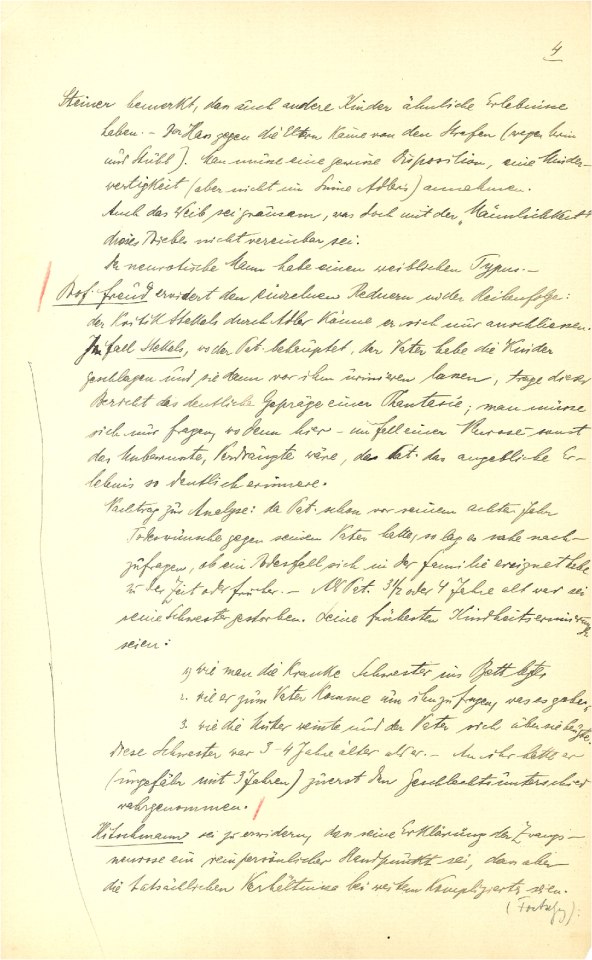 4
Steiner bemerkt, dass auch andere Kinder ähnliche Erlebnisse
haben. – Der Hass gegen die Eltern käme von den Strafen (wegen
und Stuhl). Man müsse eine gewisse Disposition, eine Minder-
wertigkeit (aber nicht im Sinne Adlers) annehmen.
Auch das Weib sei grausam, was doch mit der „Männlichkeit"
dieses Triebes nicht vereinbar sei.
Der neurotische Mann habe einen weiblichen Typus. –
Prof. Freud erwidert den einzelnen Rednern in der Reihenfolge:
der Kritik Stekels durch Adler könne er sich nur anschliessen.
Im Fall Stekels, wo der Pat. behauptet, der Vater habe die Kinder
geschlagen und sie dann vor ihm urinieren lassen, trage dieser
Bericht das deutliche Gepräge einer Phantasie; man müsse
sich nur fragen, wo denn hier – im Fall einer Neurose – sonst
das Unbewusste, Verdrängte wäre, da Pat. das angebliche Er-
lebnis so deutlich erinnere.
Nachtrag zur Analyse: da Pat. schon vor seinem achten Jahr
Todeswünsche gegen seinen Vater hatte, so lag es nahe nach-
zufragen, ob ein Todesfall sich in der Familie ereignet habe
zu der Zeit oder früher. – Als Pat. 3½ oder 4 Jahre alt war sei
seine Schwester gestorben. Seine frühesten Kindheitserinnerungen
seien:
1) wie man die kranke Schwester ins Bett legte
2. wie er zum Vater komme um ihn zu fragen, was es gebe,
3. wie die Mutter weinte und der Vater sich über sie beugte.
Diese Schwester war 3-4 Jahre älter als er. – An ihr hatte er
(ungefähr mit 3 Jahren) zuerst den Geschlechtsunterschied
wahrgenommen.
Hitschmann sei zu erwidern, dass seine Erklärung der Zwangs-
neurose ein rein persönlicher Standpunkt sei, dass aber
die tatsächlichen Verhältnisse bei weitem komplizierter seien.